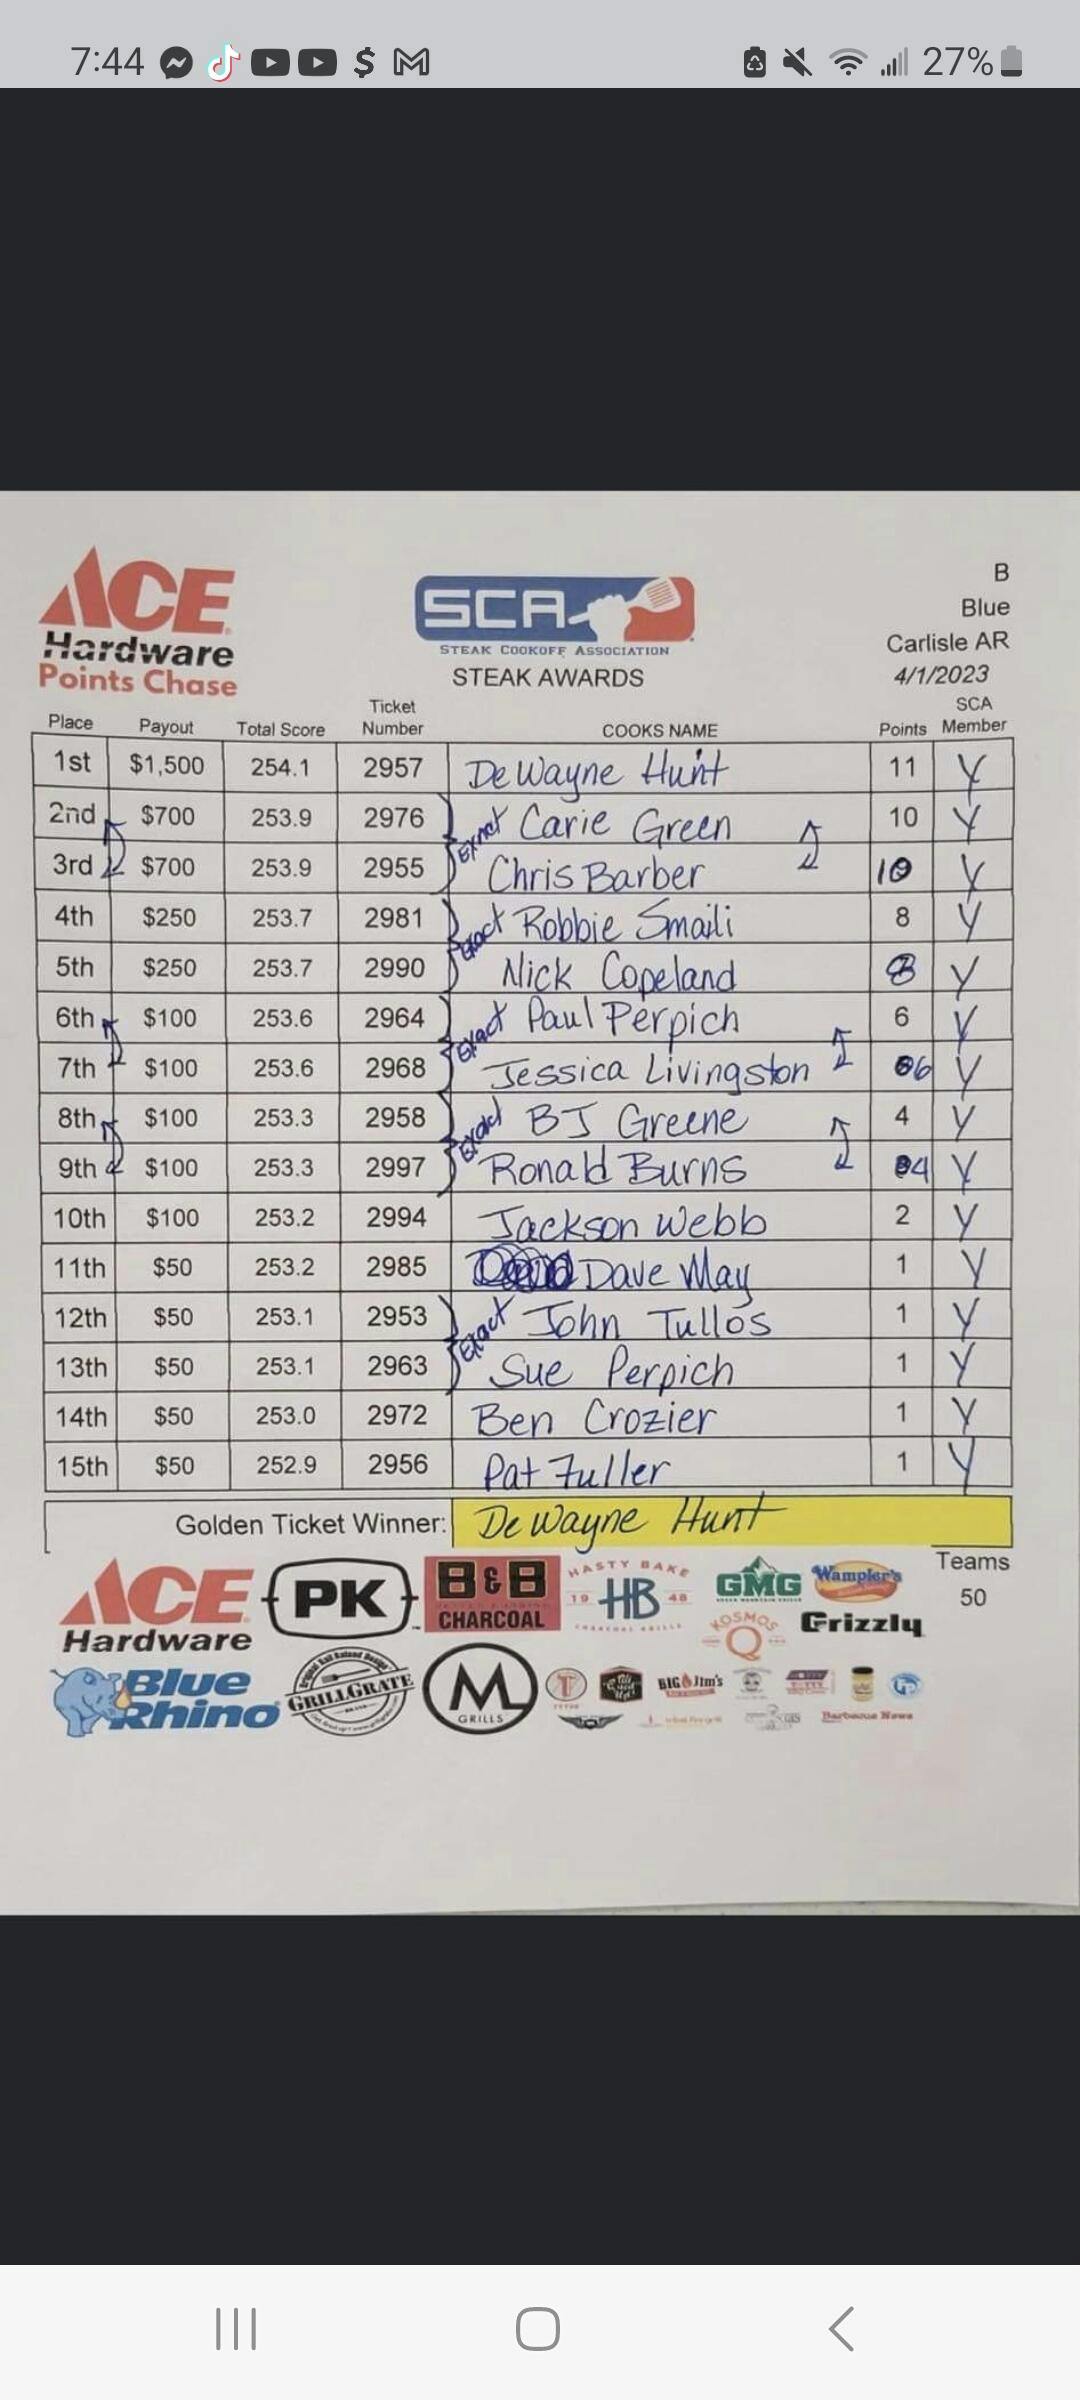 7:44 $ 27%
ACE
Hardware
Points Chase
SCA
STEAK COOKOFF ASSOCIATION
STEAK AWARDS
B
Blue
Carlisle AR
4/1/2023
Place Payout Total Score Ticket Number COOKS NAME Points SCA Member
1st $1,500 254.1 2957 DeWayne Hunt 11 Y
2nd $700 253.9 2976 Exact Carie Green 10 Y
3rd $700 253.9 2955 Chris Barber 10 Y
4th $250 253.7 2981 Exact Robbie Smaili 8 Y
5th $250 253.7 2990 Nick Copeland 8 Y
6th $100 253.6 2964 Exact Paul Perpich 6 Y
7th $100 253.6 2968 Jessica Livingston 6 Y
8th $100 253.3 2958 Exact BJ Greene 4 Y
9th $100 253.3 2997 Ronald Burns 4 Y
10th $100 253.2 2994 Jackson Webb 2 Y
11th $50 253.2 2985 Dave May 1 Y
12th $50 253.1 2953 Exact John Tullos 1 Y
13th $50 253.1 2963 Sue Perpich 1 Y
14th $50 253.0 2972 Ben Crozier 1 Y
15th $50 252.9 2956 Pat Fuller 1 Y
Golden Ticket Winner: DeWayne Hunt
Teams
50
ACE
Hardware
PK
B&B
CHARCOAL
HASTY BAKE
19 HB 48
GMG
Wampler's
KOSMOS
Q
Grizzly
Blue
Rhino
GRILLGRATE
M
GRILLS
BIG Jim's
Barbecue News